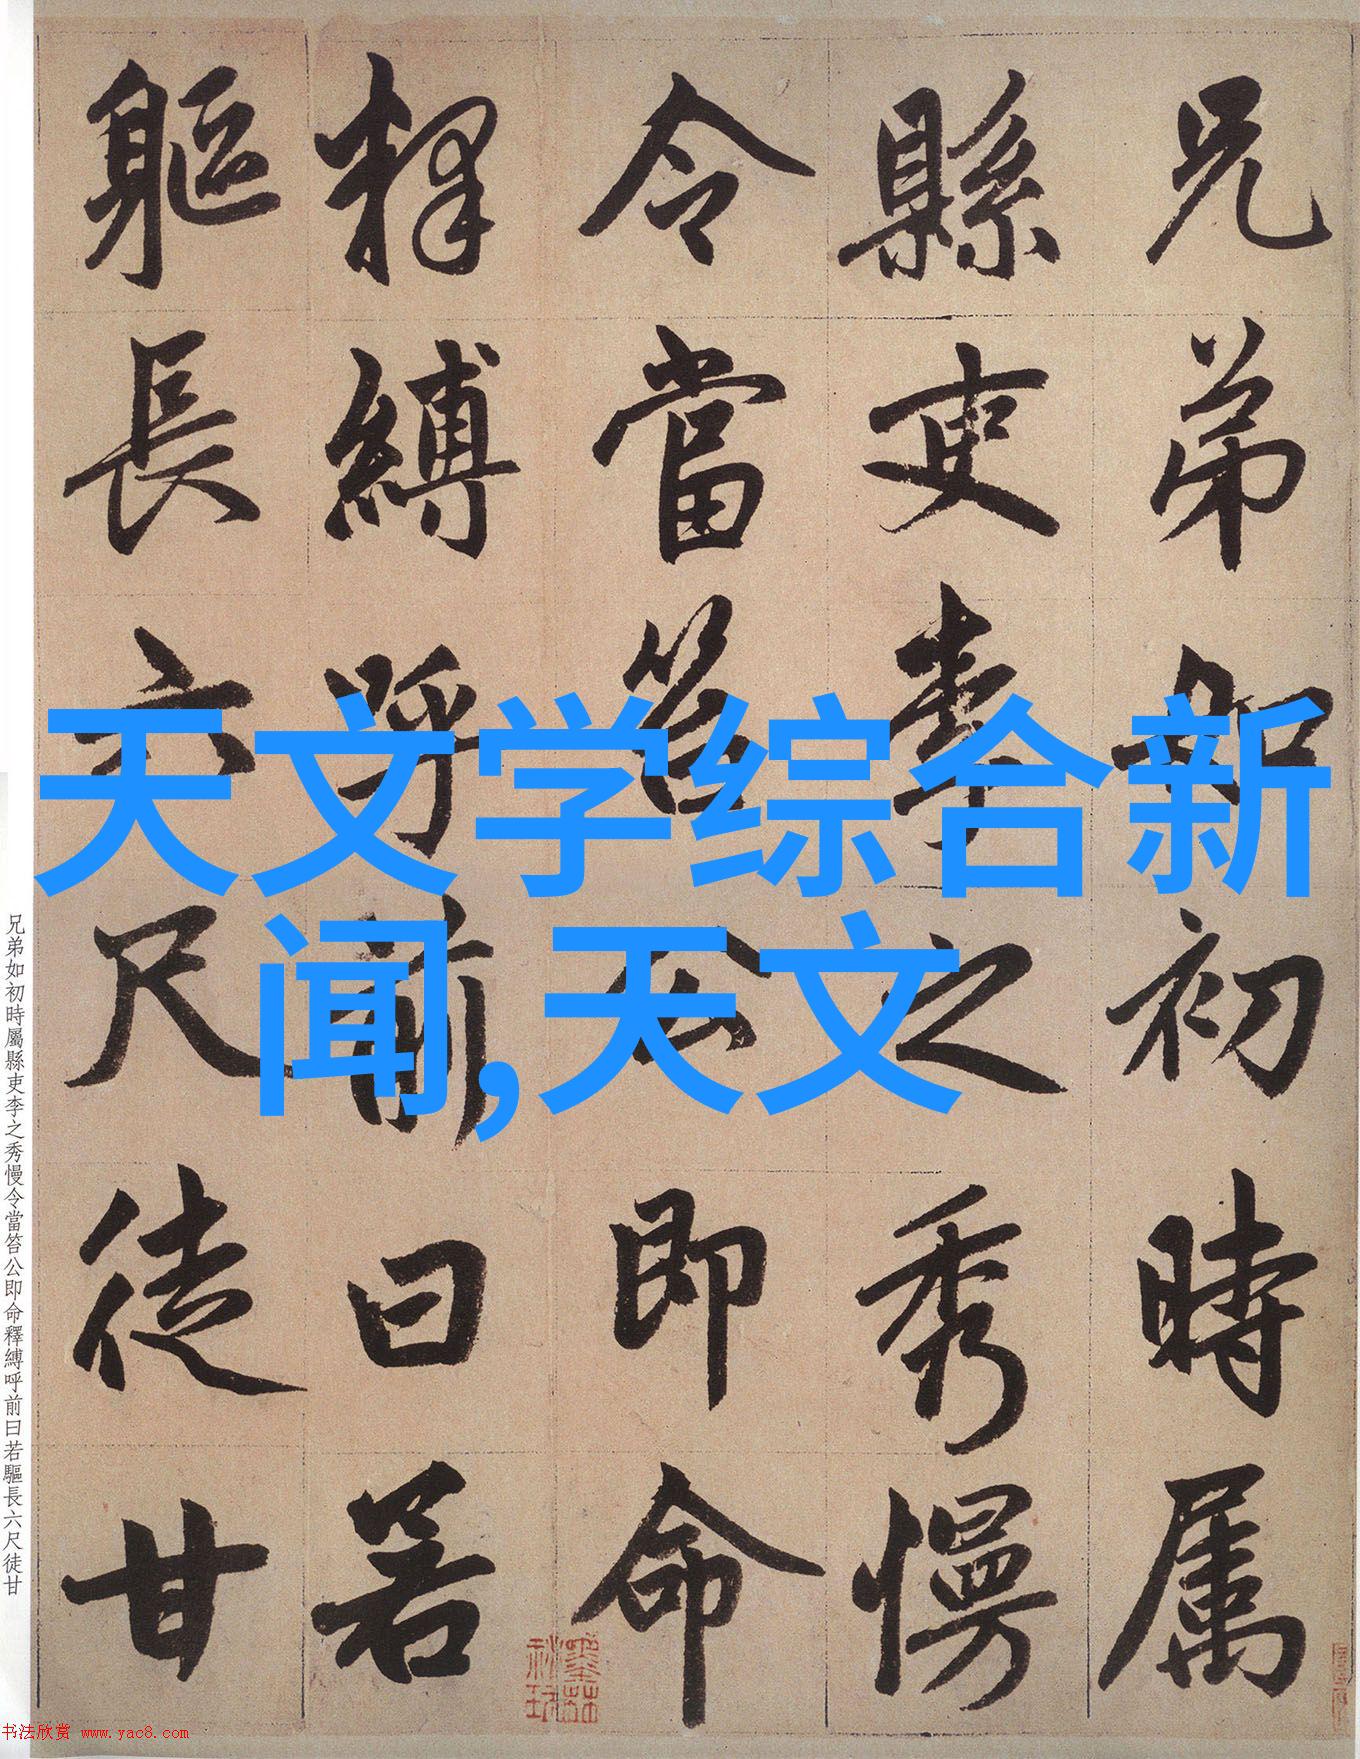 兄弟如初時属
縣吏李之秀慢
令當笞公即命
釋縛呼前曰若
軀長六尺徒甘
天文学综合新
闻,天文
兄弟如初時屬縣吏李之秀慢令當笞公即命釋縛呼前曰若驅長六尺徒甘
书法欣赏 www.yac8.com